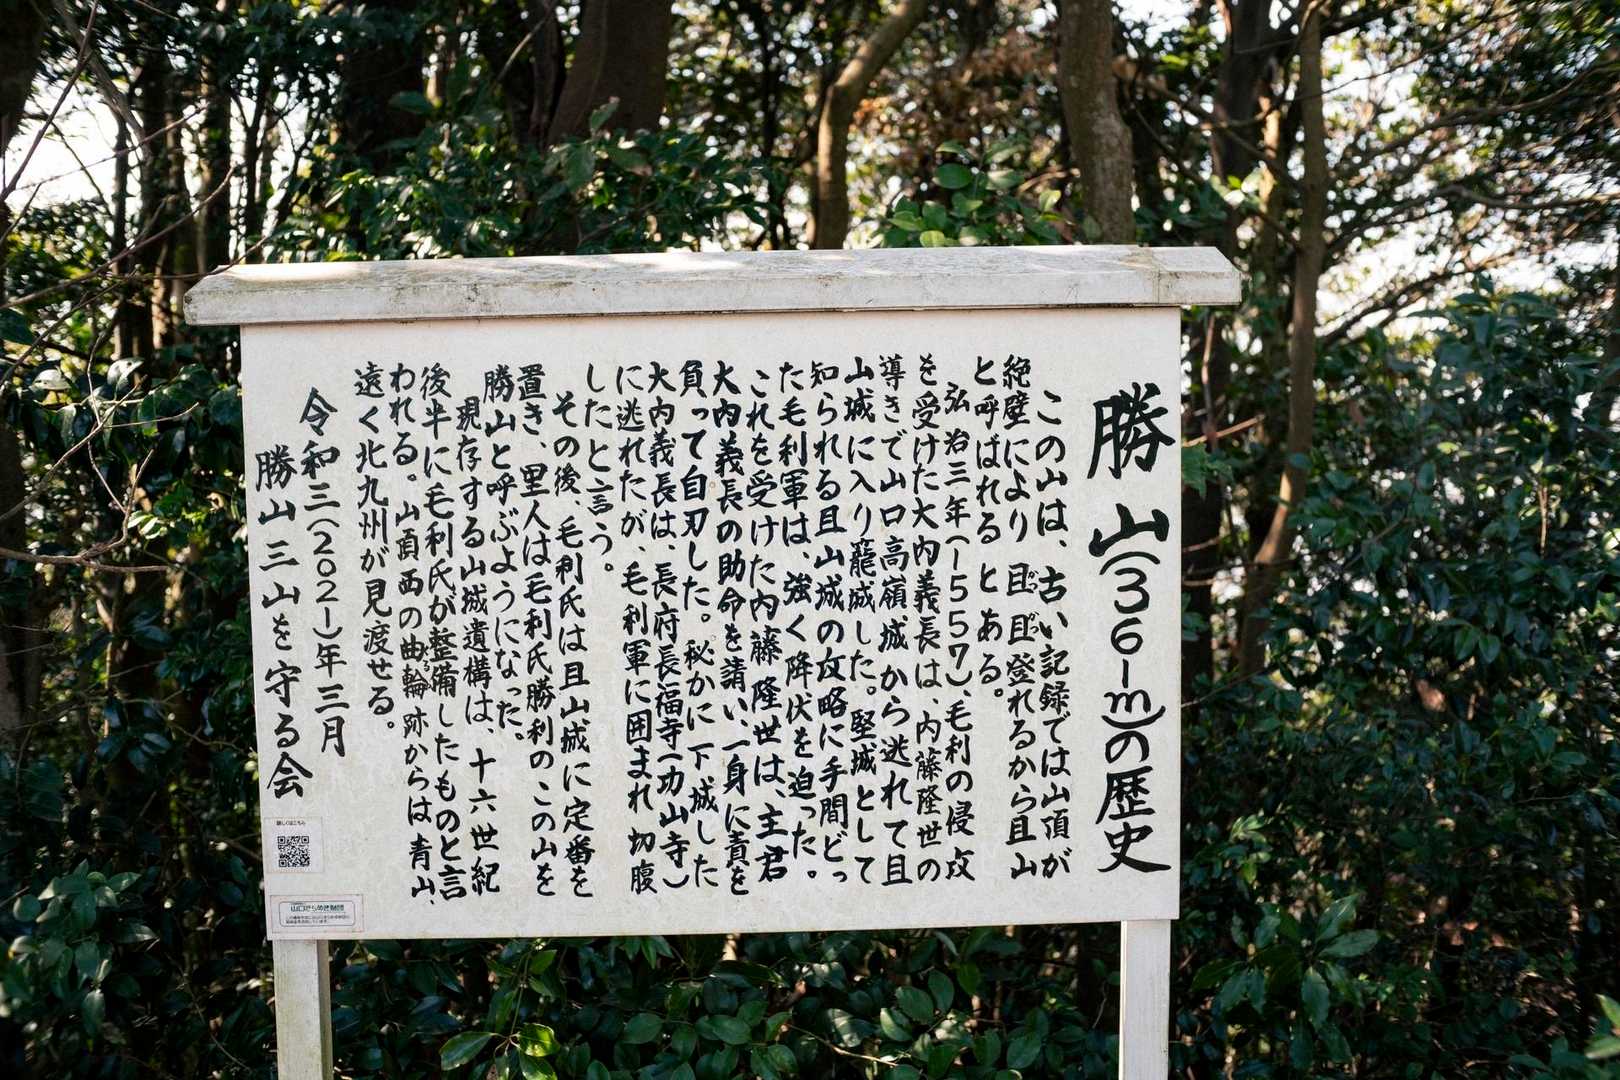 勝山(361m)の歴史
この山は、古い記録では山頂が
絶壁により且且登れるから且山
と呼ばれる とある。
弘治三年(1557)、毛利の侵攻
を受けた大内義長は、内藤隆世の
導きで山口高嶺城から逃れて且
山城に入り籠城した。堅城として
知られる且山城の攻略に手間どっ
た毛利軍は、強く降伏を迫った。
これを受けた内藤隆世は、主君
大内義長の助命を請い、一身に責を
負って自刃した。秘かに下城した
大内義長は、長府長福寺(功山寺)
に逃れたが、毛利軍に囲まれ切腹
したと言う。
その後、毛利氏は且山城に定番を
置き、里人は毛利氏勝利のこの山を
勝山と呼ぶようになった。
現存する山城遺構は、十六世紀
後半に毛利氏が整備したものと言
われる。山頂西の曲輪跡からは青山、
遠く北九州が見渡せる。
令和三(2021)年三月
勝山三山を守る会
詳しくはこちら
山口きらめき財団